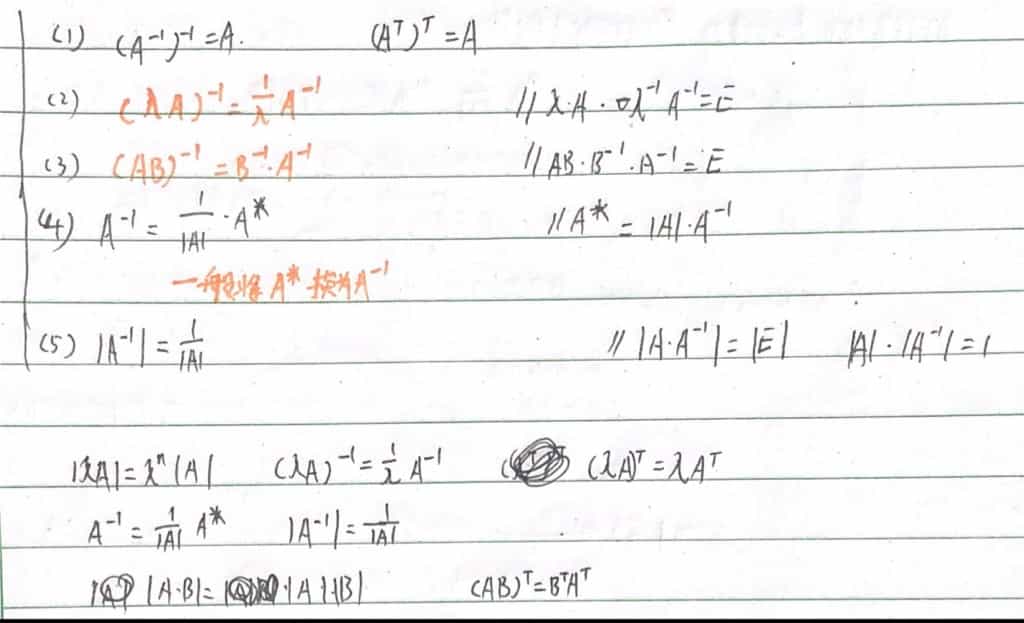 (1) (A⁻¹)⁻¹=A. (Aᵀ)ᵀ=A
(2) (λA)⁻¹=1/λ A⁻¹ // λ·A·λ⁻¹A⁻¹=E
(3) (AB)⁻¹=B⁻¹·A⁻¹ // AB·B⁻¹·A⁻¹=E
(4) A⁻¹=1/|A|·A* // A*=|A|·A⁻¹
一般将A*换为A⁻¹
(5) |A⁻¹|=1/|A| // |A·A⁻¹|=|E| |A|·|A⁻¹|=1
|λA|=λⁿ|A| (λA)⁻¹=1/λ A⁻¹ (λA)ᵀ=λAᵀ
A⁻¹=1/|A| A* |A⁻¹|=1/|A|
|A·B|=|A|·|B| (AB)ᵀ=BᵀAᵀ